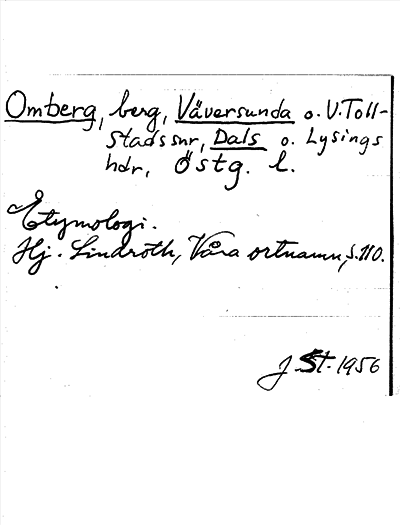 Omberg, berg, Väversunda o. V. Toll-
stads snr, Dals o. Lysings
hdr, Östg. l.
Etymologi.
Hj. Lindroth, Våra ortnamn, s. 110.
J. St. 1956